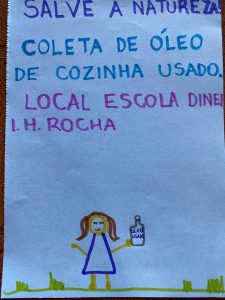 SALVE A NATUREZA!
COLETA DE ÓLEO
DE COZINHA USADO.
LOCAL ESCOLA DINE
I. H. ROCHA
ÓLEO
USADO